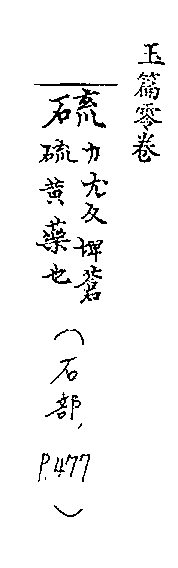 玉篇零卷
硫力尤反埤蒼
石硫黄藥也(石部,P.477)